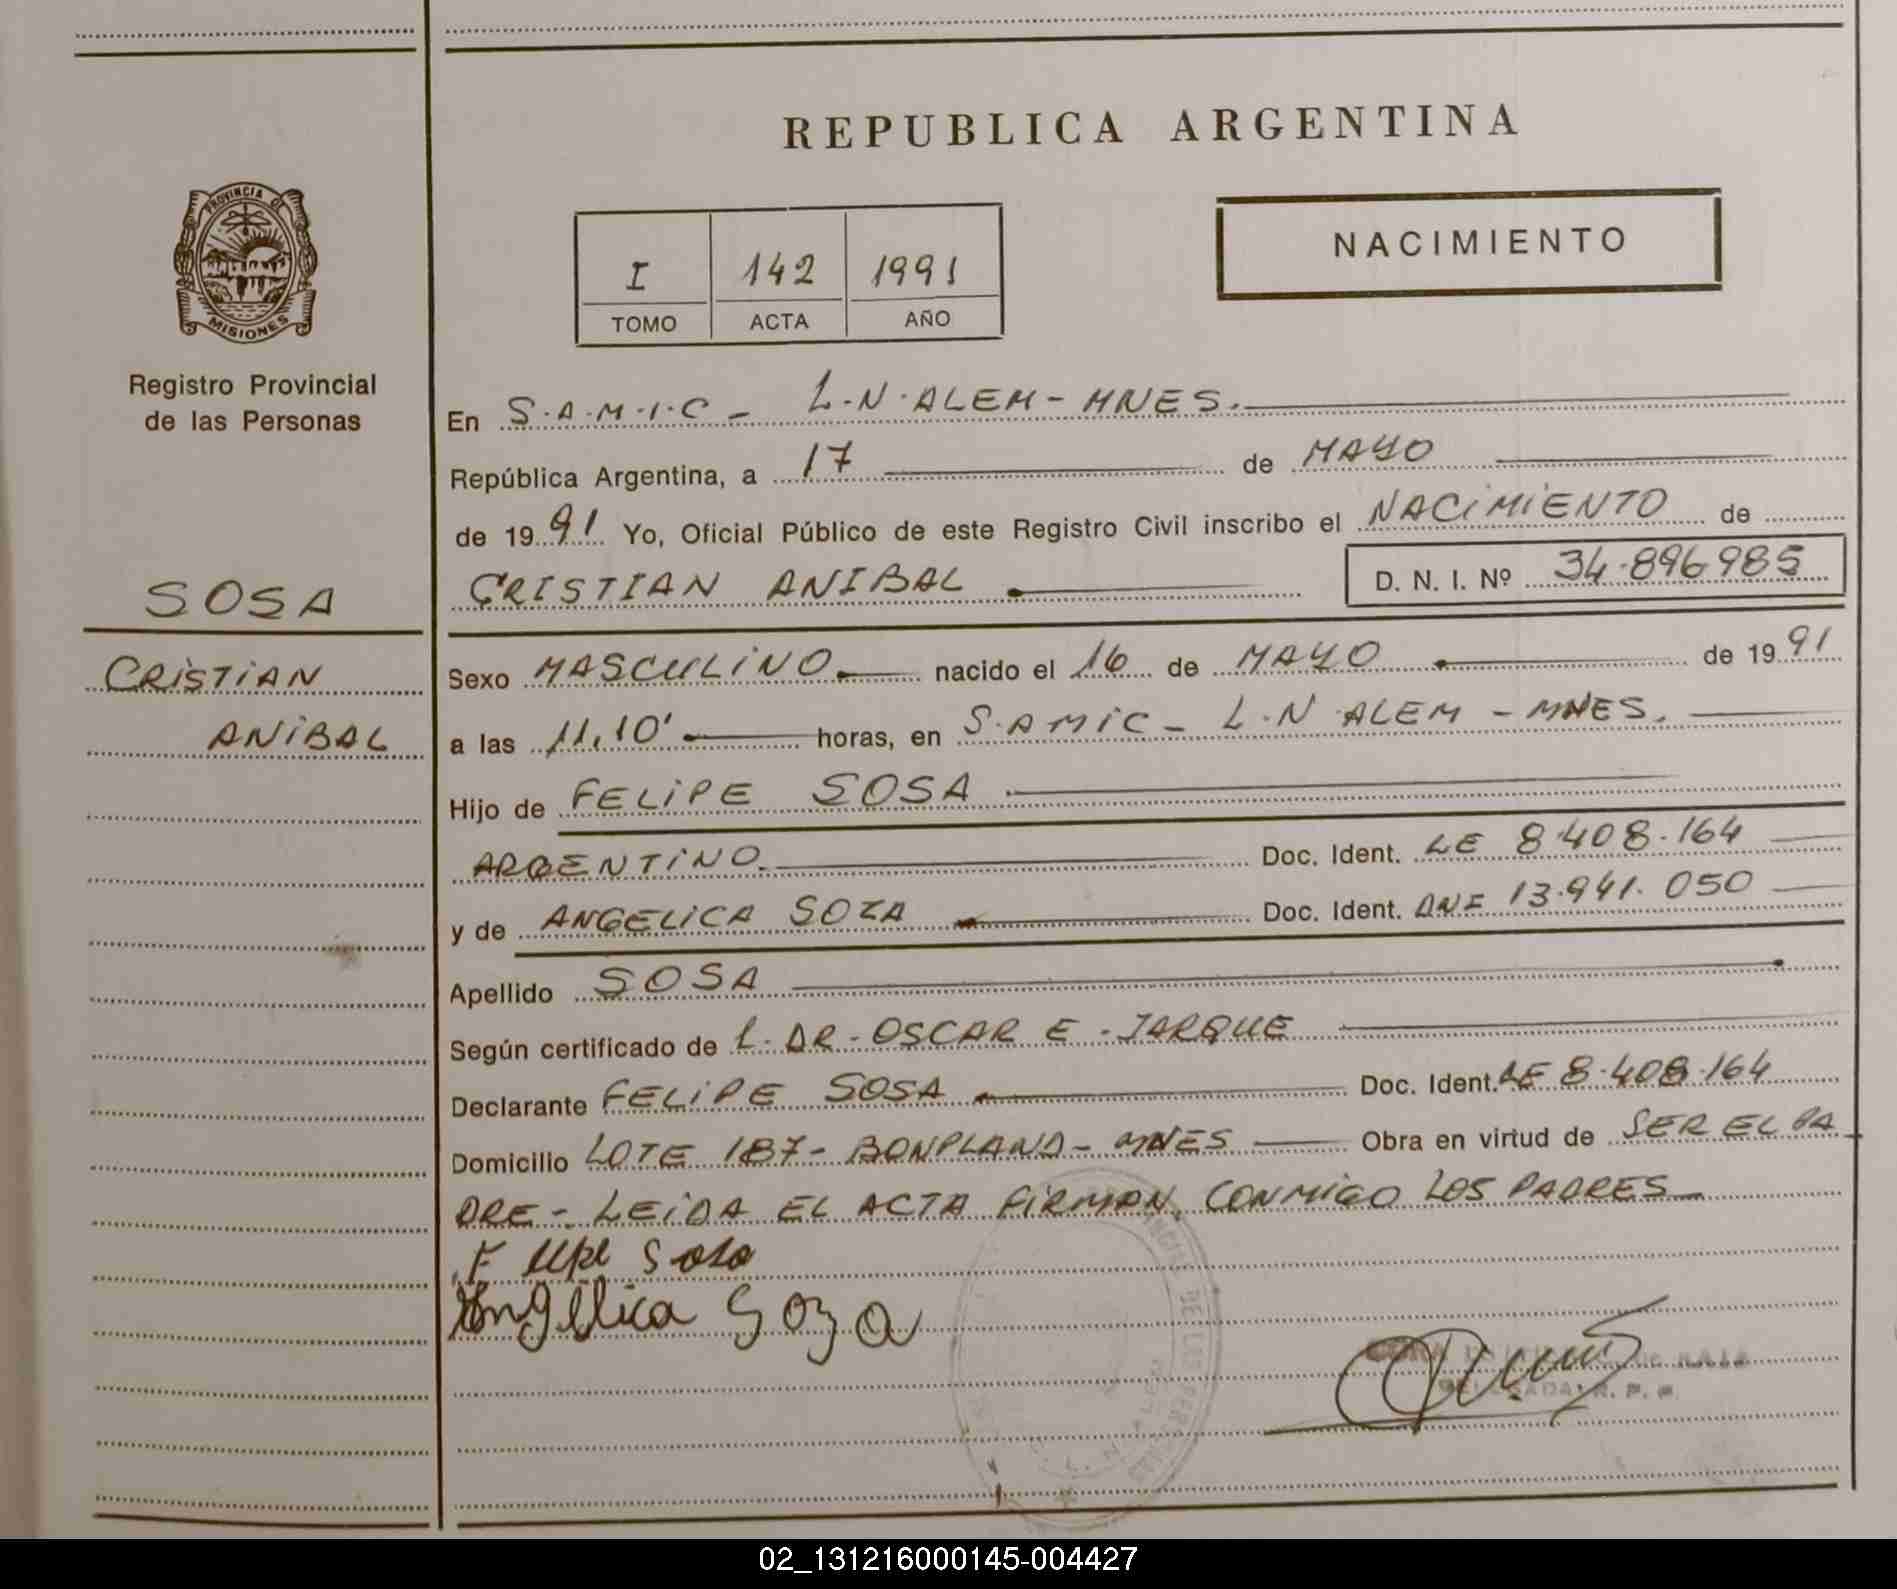 REPUBLICA ARGENTINA
PROVINCIA DE
MISIONES
Registro Provincial
de las Personas
I 142 1991
TOMO ACTA AÑO
NACIMIENTO
En S.A.M.I.C - L.N.ALEM - MNES.
República Argentina, a 17 de MAYO
de 1991 Yo, Oficial Público de este Registro Civil inscribo el NACIMIENTO de
CRISTIAN ANIBAL D. N. I. Nº 34.896985
SOSA
CRISTIAN
ANIBAL
Sexo MASCULINO nacido el 16 de MAYO de 1991
a las 11,10' horas, en S.AMIC - L.N ALEM - MNES.
Hijo de FELIPE SOSA
ARGENTINO. Doc. Ident. LE 8.408.164
y de ANGELICA SOZA Doc. Ident. DNI 13.941.050
Apellido SOSA
Según certificado de L. DR. OSCAR E. JARQUE
Declarante FELIPE SOSA Doc. Ident. LE 8.408.164
Domicilio LOTE 187 - BONPLAND - MNES Obra en virtud de SER EL PA
DRE - LEIDA EL ACTA FIRMAN CONMIGO LOS PADRES
Angelica Soza
DE LAS PERSONAS
02_131216000145-004427